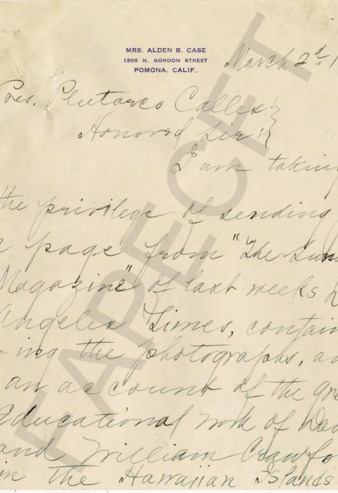 MRS. ALDEN B. CASE
1306 N. GORDON STREET
POMONA, CALIF.
March 2d, 1
Pres. Plutarco Calles}
Honored Sir:}
I am taking
the privilege of sending
page from "The Sun
Magazine" of last weeks L
Angeles Times, contain
-ing the photographs, an
an account of the gre
Educational work of Dav
and William Crawfo
in the Hawaiian Islands
FAPECFT